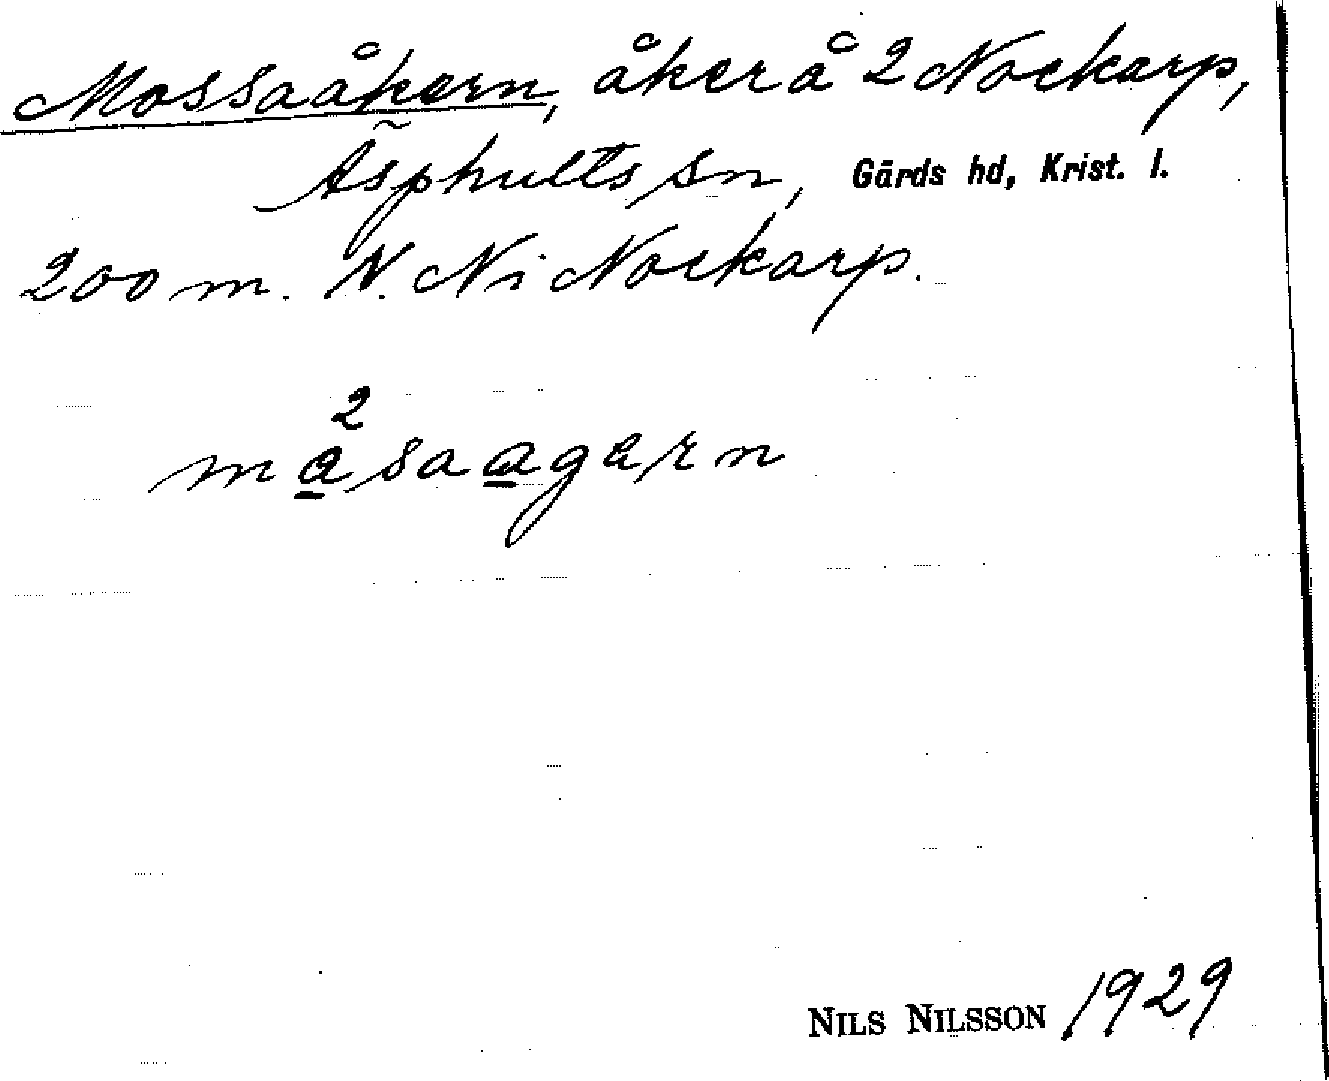 Mossaåkern, åker å 2 Nockarp,
Äsphults sn, Gärds hd, Krist. l.
200 m. N. N i Nockarp.
2
måsaagern
NILS NILSSON 1929